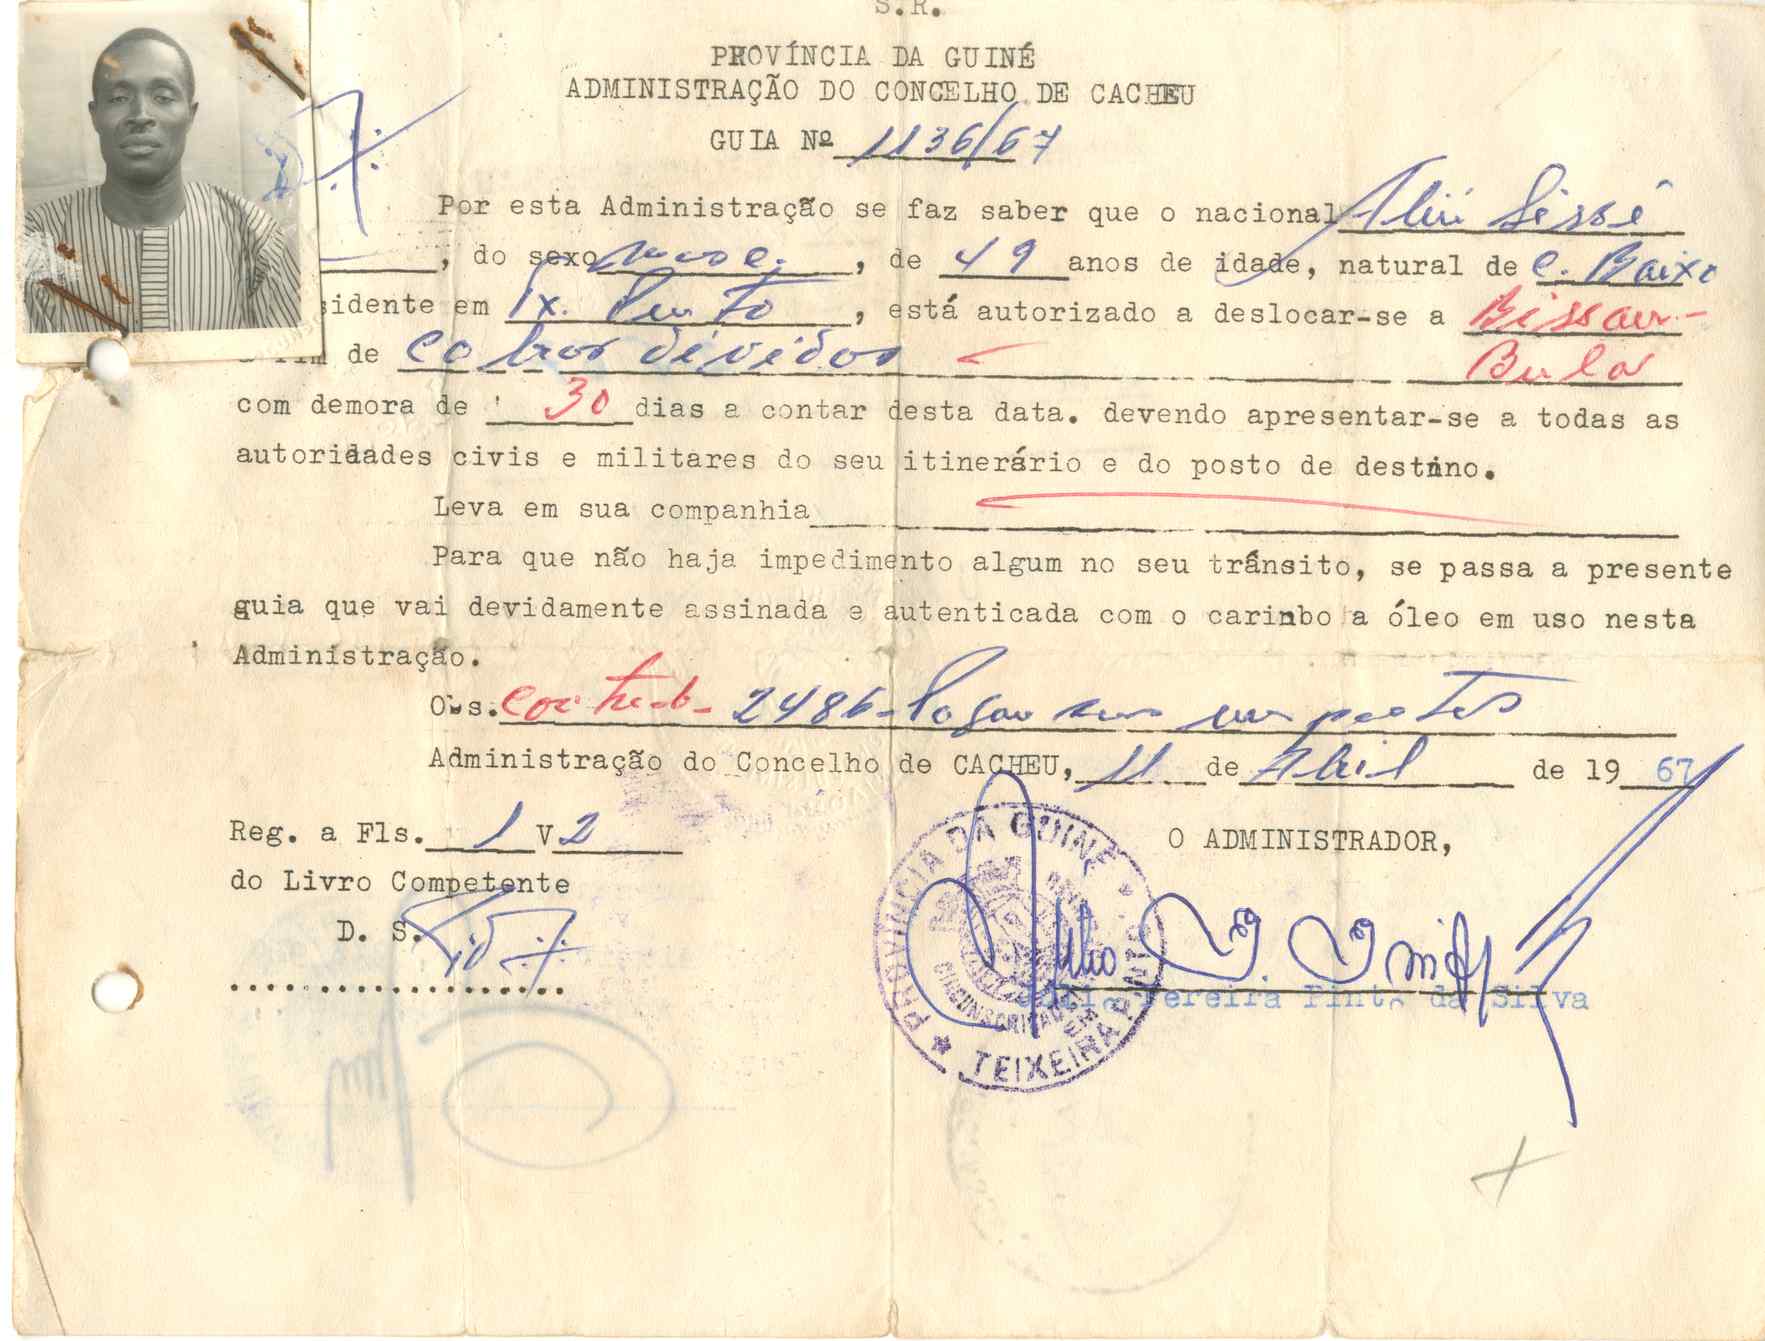 S.R.
PROVÍNCIA DA GUINÉ
ADMINISTRAÇÃO DO CONCELHO DE CACHEU
GUIA Nº 1136/67
Por esta Administração se faz saber que o nacional Aliú Sissé
, do sexo masc. , de 49 anos de idade, natural de C. Baixo
sidente em Tx. Pinto , está autorizado a deslocar-se a Bissau-
fim de cobrar dividas Bula
com demora de 30 dias a contar desta data. devendo apresentar-se a todas as
autoridades civis e militares do seu itinerário e do posto de destino.
Leva em sua companhia
Para que não haja impedimento algum no seu trânsito, se passa a presente
guia que vai devidamente assinada e autenticada com o carimbo a óleo em uso nesta
Administração.
Obs. Contrib- 2486- Pagou seus impostos
Administração do Concelho de CACHEU, 11 de Abril de 1967
Reg. a Fls. 1 V 2
do Livro Competente
D. S.
O ADMINISTRADOR,
Júlio Pereira Pinto da Silva
PROVÍNCIA DA GUINÉ
CIRCUNSCRIÇÃO
TEIXEIRA PINTO